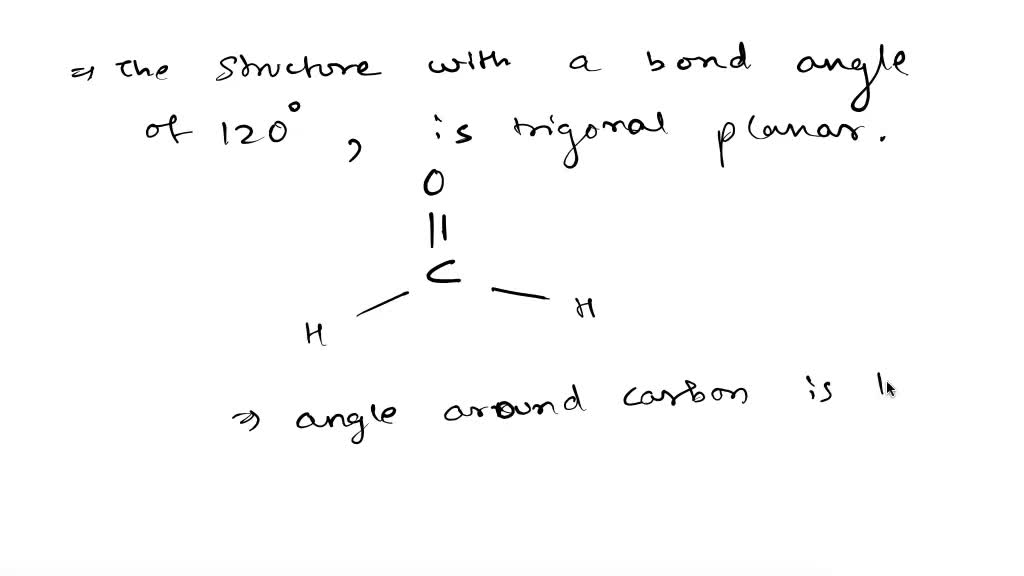 ⇒ The structure with a bond angle
of 120°, is trigonal planar.
O
||
C
H H
⇒ angle around carbon is 1